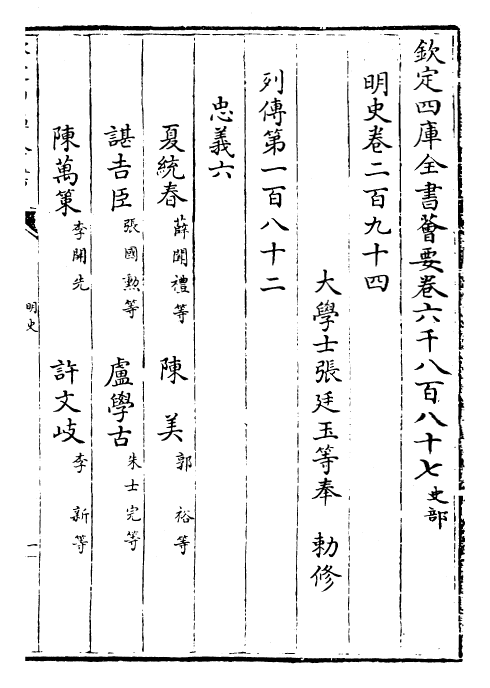 欽定四庫全書薈要卷六千八百八十七 史部
明史卷二百九十四
大學士張廷玉等奉 勅修
列傳第一百八十二
忠義六
夏統春 薛聞禮等 陳 美 郭 裕等
諶吉臣 張國勲等 盧學古 朱士完等
陳萬策 李開先 許文岐 李 新等
明史
一